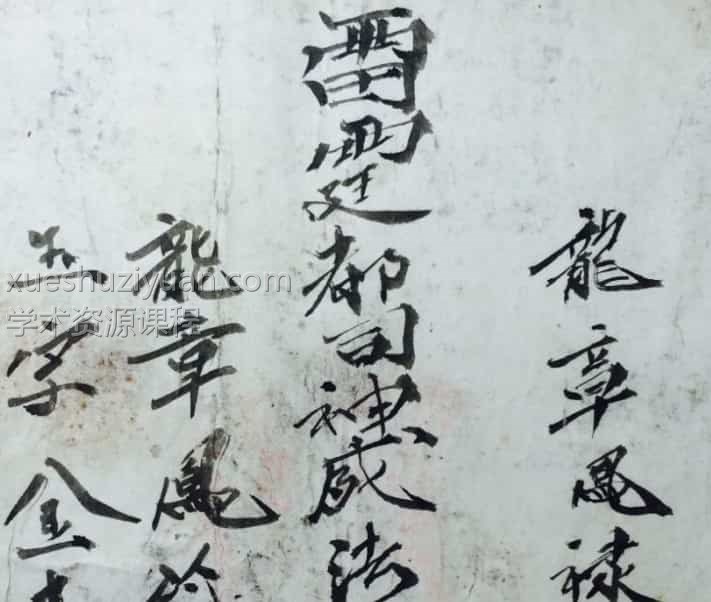 龍章鳳祿
雷霆都司神威法
龍章鳳
金
字
xueshuziyuan.com
学术资源课程